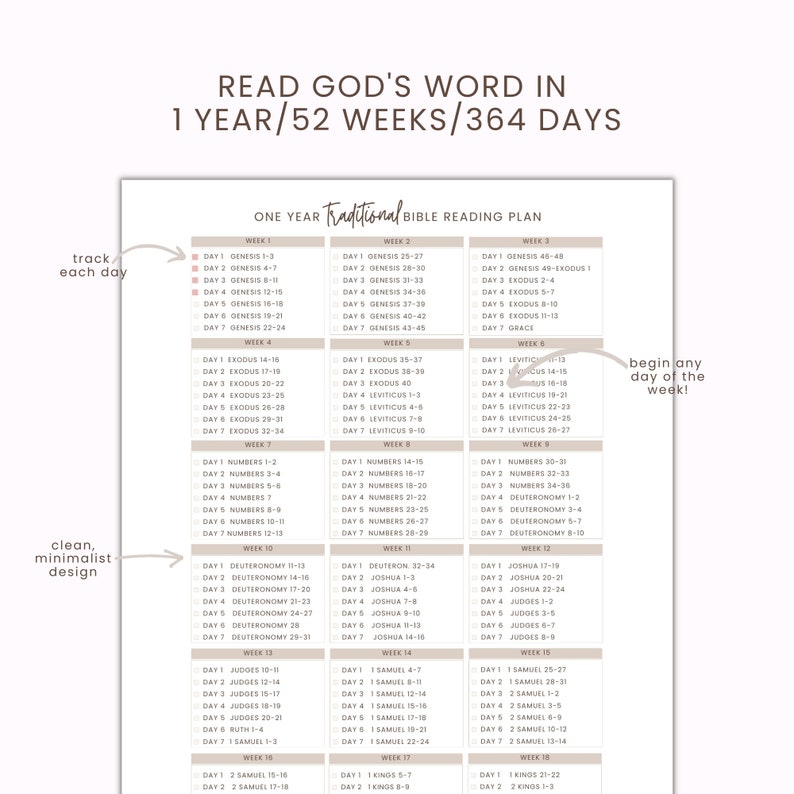 READ GOD'S WORD IN
1 YEAR/52 WEEKS/364 DAYS
ONE YEAR Traditional BIBLE READING PLAN
track
each day
begin any
day of the
week!
clean,
minimalist
design
WEEK 1
DAY 1 GENESIS 1-3
DAY 2 GENESIS 4-7
DAY 3 GENESIS 8-11
DAY 4 GENESIS 12-15
DAY 5 GENESIS 16-18
DAY 6 GENESIS 19-21
DAY 7 GENESIS 22-24
WEEK 2
DAY 1 GENESIS 25-27
DAY 2 GENESIS 28-30
DAY 3 GENESIS 31-33
DAY 4 GENESIS 34-36
DAY 5 GENESIS 37-39
DAY 6 GENESIS 40-42
DAY 7 GENESIS 43-45
WEEK 3
DAY 1 GENESIS 46-48
DAY 2 GENESIS 49-EXODUS 1
DAY 3 EXODUS 2-4
DAY 4 EXODUS 5-7
DAY 5 EXODUS 8-10
DAY 6 EXODUS 11-13
DAY 7 GRACE
WEEK 4
DAY 1 EXODUS 14-16
DAY 2 EXODUS 17-19
DAY 3 EXODUS 20-22
DAY 4 EXODUS 23-25
DAY 5 EXODUS 26-28
DAY 6 EXODUS 29-31
DAY 7 EXODUS 32-34
WEEK 5
DAY 1 EXODUS 35-37
DAY 2 EXODUS 38-39
DAY 3 EXODUS 40
DAY 4 LEVITICUS 1-3
DAY 5 LEVITICUS 4-6
DAY 6 LEVITICUS 7-8
DAY 7 LEVITICUS 9-10
WEEK 6
DAY 1 LEVITICUS 11-13
DAY 2 LEVITICUS 14-15
DAY 3 16-18
DAY 4 LEVITICUS 19-21
DAY 5 LEVITICUS 22-23
DAY 6 LEVITICUS 24-25
DAY 7 LEVITICUS 26-27
WEEK 7
DAY 1 NUMBERS 1-2
DAY 2 NUMBERS 3-4
DAY 3 NUMBERS 5-6
DAY 4 NUMBERS 7
DAY 5 NUMBERS 8-9
DAY 6 NUMBERS 10-11
DAY 7 NUMBERS 12-13
WEEK 8
DAY 1 NUMBERS 14-15
DAY 2 NUMBERS 16-17
DAY 3 NUMBERS 18-20
DAY 4 NUMBERS 21-22
DAY 5 NUMBERS 23-25
DAY 6 NUMBERS 26-27
DAY 7 NUMBERS 28-29
WEEK 9
DAY 1 NUMBERS 30-31
DAY 2 NUMBERS 32-33
DAY 3 NUMBERS 34-36
DAY 4 DEUTERONOMY 1-2
DAY 5 DEUTERONOMY 3-4
DAY 6 DEUTERONOMY 5-7
DAY 7 DEUTERONOMY 8-10
WEEK 10
DAY 1 DEUTERONOMY 11-13
DAY 2 DEUTERONOMY 14-16
DAY 3 DEUTERONOMY 17-20
DAY 4 DEUTERONOMY 21-23
DAY 5 DEUTERONOMY 24-27
DAY 6 DEUTERONOMY 28
DAY 7 DEUTERONOMY 29-31
WEEK 11
DAY 1 DEUTERON. 32-34
DAY 2 JOSHUA 1-3
DAY 3 JOSHUA 4-6
DAY 4 JOSHUA 7-8
DAY 5 JOSHUA 9-10
DAY 6 JOSHUA 11-13
DAY 7 JOSHUA 14-16
WEEK 12
DAY 1 JOSHUA 17-19
DAY 2 JOSHUA 20-21
DAY 3 JOSHUA 22-24
DAY 4 JUDGES 1-2
DAY 5 JUDGES 3-5
DAY 6 JUDGES 6-7
DAY 7 JUDGES 8-9
WEEK 13
DAY 1 JUDGES 10-11
DAY 2 JUDGES 12-14
DAY 3 JUDGES 15-17
DAY 4 JUDGES 18-19
DAY 5 JUDGES 20-21
DAY 6 RUTH 1-4
DAY 7 1 SAMUEL 1-3
WEEK 14
DAY 1 1 SAMUEL 4-7
DAY 2 1 SAMUEL 8-11
DAY 3 1 SAMUEL 12-14
DAY 4 1 SAMUEL 15-16
DAY 5 1 SAMUEL 17-18
DAY 6 1 SAMUEL 19-21
DAY 7 1 SAMUEL 22-24
WEEK 15
DAY 1 1 SAMUEL 25-27
DAY 2 1 SAMUEL 28-31
DAY 3 2 SAMUEL 1-2
DAY 4 2 SAMUEL 3-5
DAY 5 2 SAMUEL 6-9
DAY 6 2 SAMUEL 10-12
DAY 7 2 SAMUEL 13-14
WEEK 16
DAY 1 2 SAMUEL 15-16
DAY 2 2 SAMUEL 17-18
WEEK 17
DAY 1 1 KINGS 5-7
DAY 2 1 KINGS 8-9
WEEK 18
DAY 1 1 KINGS 21-22
DAY 2 2 KINGS 1-3